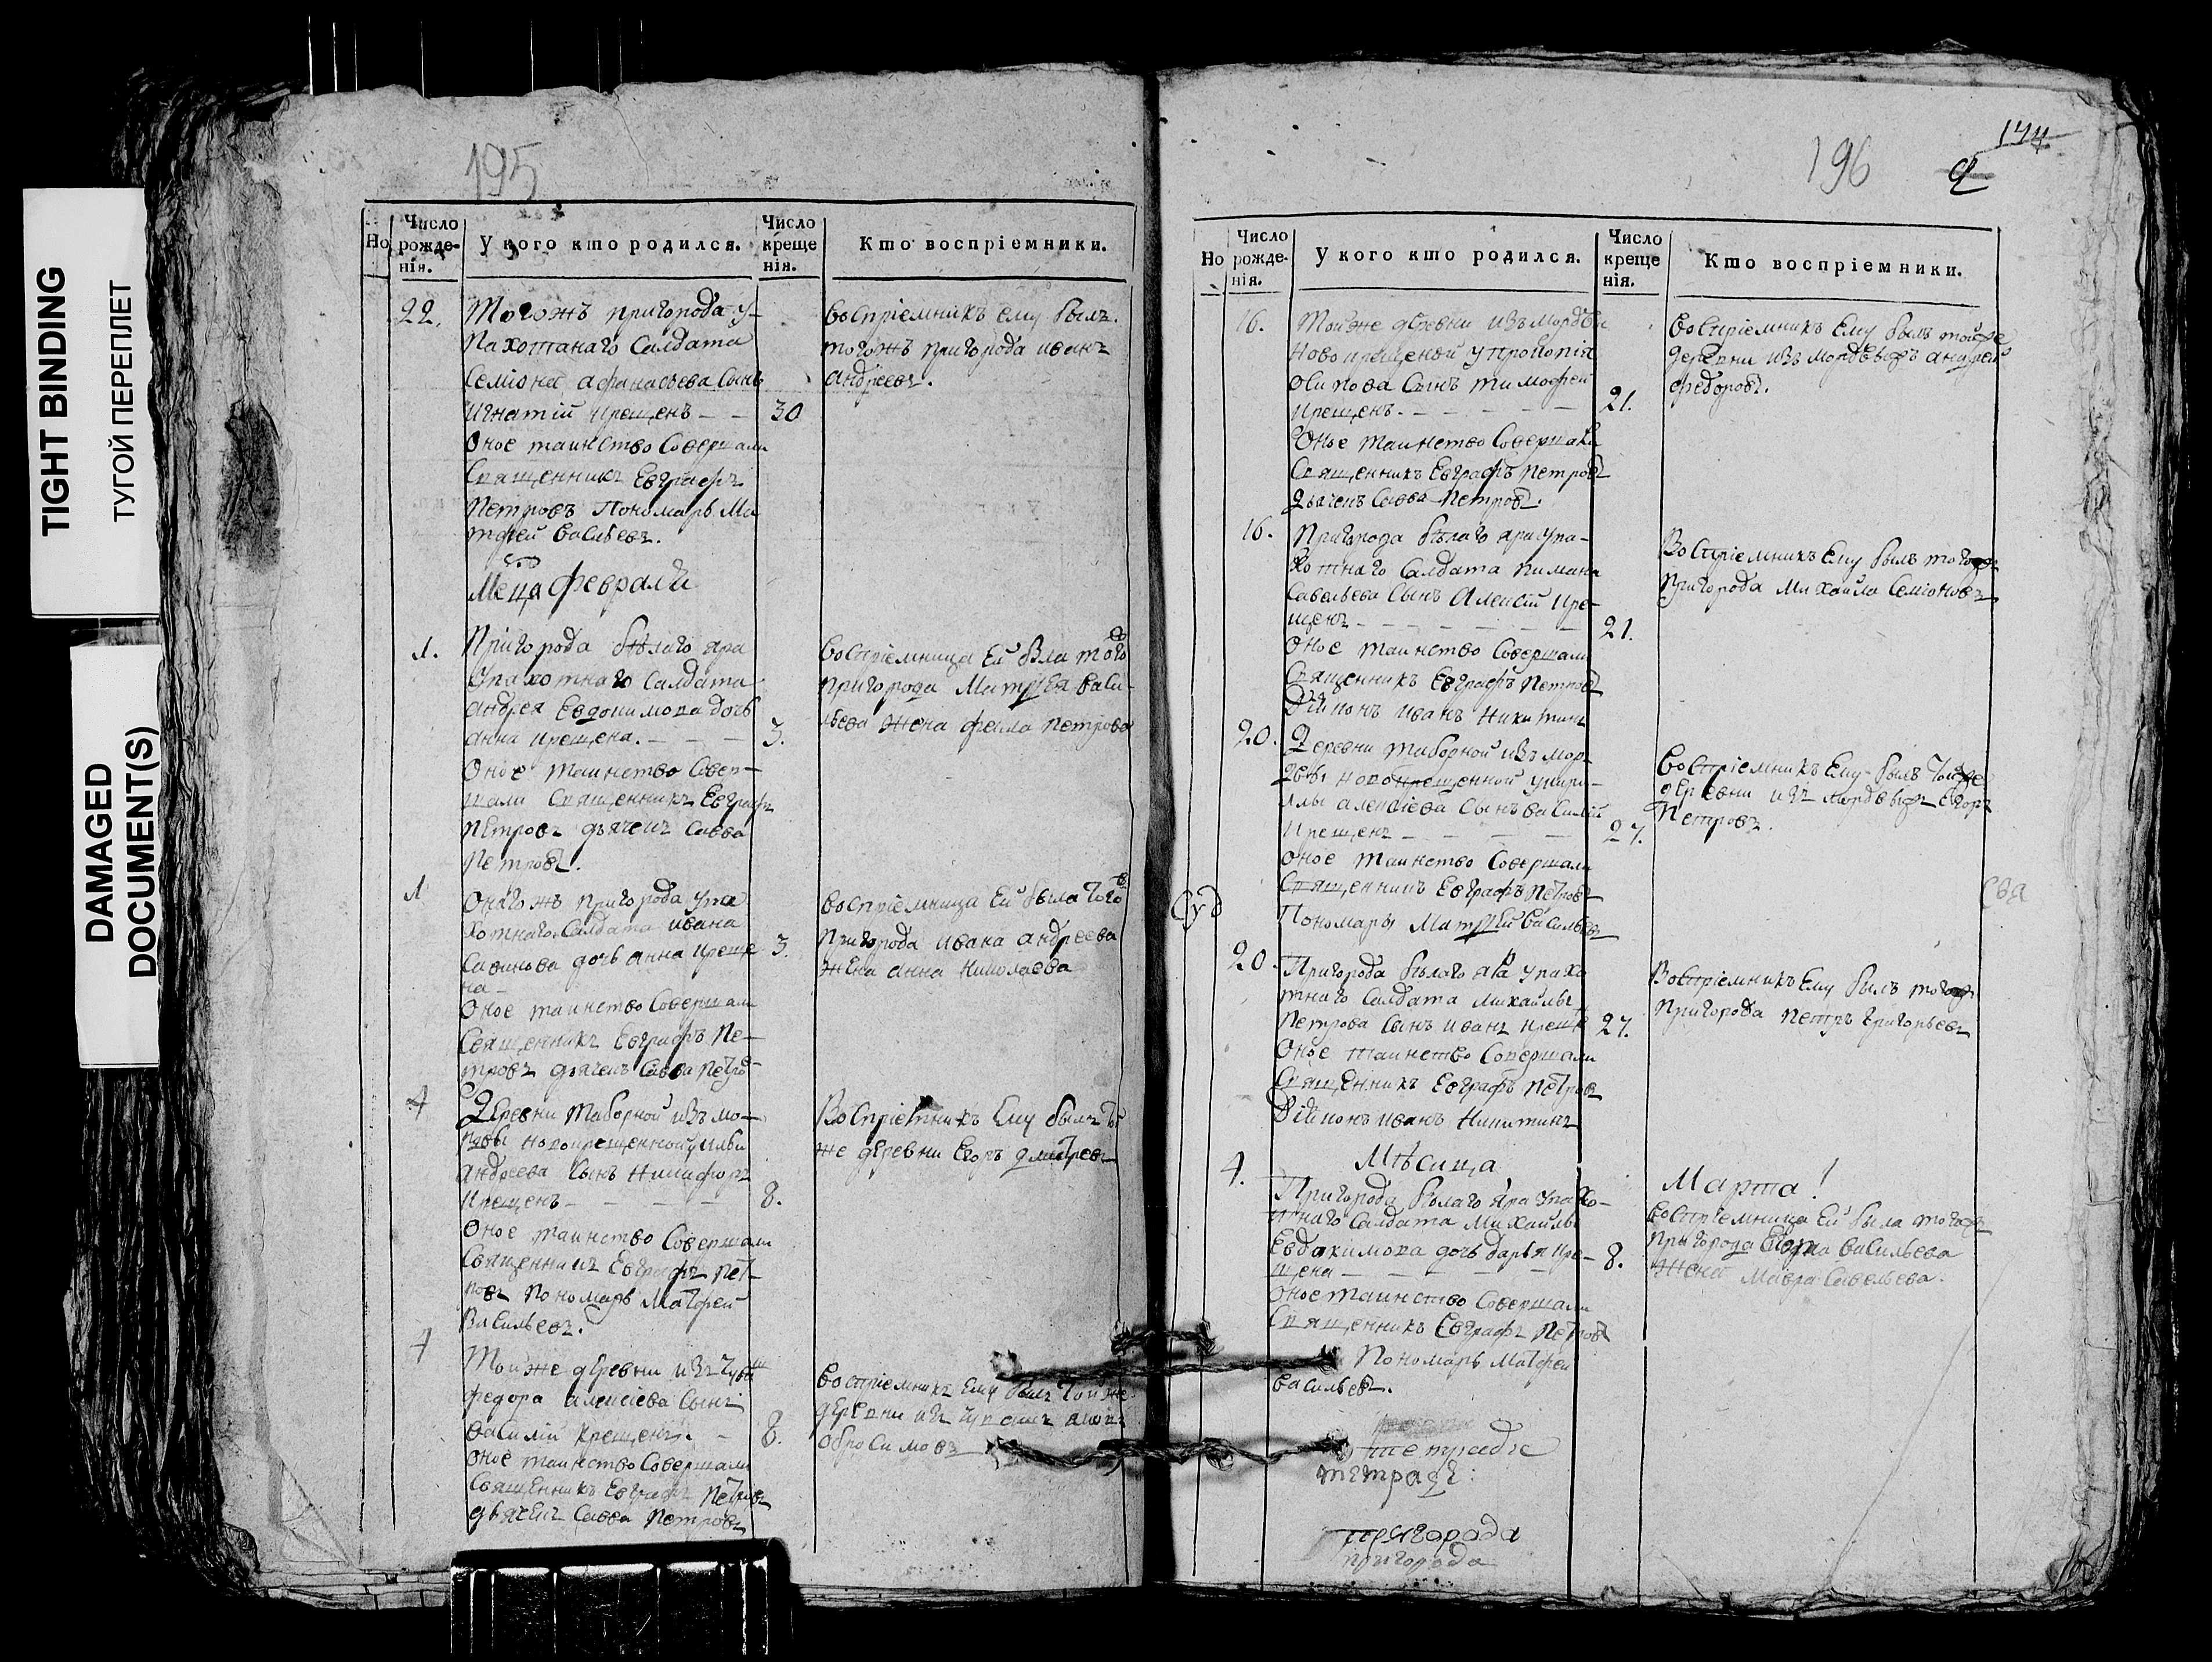 TIGHT BINDING
ТУГОЙ ПЕРЕПЛЕТ
DAMAGED
DOCUMENT(S)
195
Но
Число рожденія.
У кого кто родился.
Число крещенія.
Кто воспріемники.
22.
Тогожъ пригорода у-
пахотнаго Салдата
Семіона афанасьева Сынъ
Игнатій крещенъ - - 30
Оное таинство Совершали
Священникъ Евграфъ
Петровъ Пономарь Ма
тфей васильевъ.
воспріемникъ ему былъ
тогожъ пригорода иванъ
андреевъ.
Мсца февраля
1.
Пригорода бѣлаго яра
Упахотнаго Салдата
андрея Евдокимова дочь
анна крещена. - - - 3.
Оное таинство Совер-
шали Священникъ Евграфъ
Петровъ дьячекъ Савва
Петровъ.
воспріемница Ей была того
пригорода васи-
льева жена Петрова
1
Онагожъ пригорода упа
хотнаго Салдата ивана
Савинова дочь анна креще 3.
на -
Оное таинство Совершали
Священникъ Евграфъ Пе-
тровъ дьячекъ Савва Петро
воспріемница Ей была того
Пригорода ивана андреева
жена анна николаева
4
Деревни Таборной изъ мо-
рдвы новокрещенной
андреева Сынъ Никифоръ
крещенъ - - - - 8.
Оное таинство Совершали
Священникъ Евграфъ Пет-
ровъ Пономарь Матфей
Васильевъ.
Воспріемникъ Ему былъ той
же деревни Егоръ дмитревъ
4
Той же деревни изъ чувашъ
федора алексіева Сынъ
василій крещенъ. - 8.
оное таинство Совершали
Священникъ Евграфъ Петровъ
дьячекъ Савва Петровъ
воспріемникъ Ему былъ той же
деревни изъ чувашъ
обросимовъ
196
174
Но
Число рожденія.
У кого кто родился.
Число крещенія.
Кто воспріемники.
16.
Той же деревни изъ мордвы
новокрещеной у прокопія
осипова Сынъ тимофей
крещенъ. - - - - - 21.
Оное таинство Совершали
Священникъ Евграфъ Петровъ
Дьячекъ Савва Петровъ.
воспріемникъ Ему былъ той же
деревни изъ андрей
федоровъ.
16.
Пригорода бѣлаго яра упа-
хотнаго Салдата
Савельева Сынъ Алексій кре-
щенъ - - - - - - 21.
Оное таинство Совершали
Священникъ Евграфъ Петровъ
Діяконъ иванъ Никитинъ
Воспріемникъ Ему былъ тогожъ
Пригорода Михайла Семіоновъ
20.
Деревни таборной изъ мор-
двы новокрещенной у кири-
лы алексіева Сынъ василій
крещенъ - - - - 27.
оное таинство Совершали
Священникъ Евграфъ Петровъ
Пономарь Матфей васильевъ
воспріемникъ Ему былъ той же
деревни изъ Егоръ
Петровъ.
20.
Пригорода бѣлаго яра упахо
тнаго Салдата михайлы
Петрова Сынъ иванъ креще 27.
Оное таинство Совершали
Священникъ Евграфъ Петровъ
Діяконъ иванъ Никитинъ
Воспріемникъ Ему былъ тогожъ
Пригорода Петръ григорьевъ
Мѣсяца
Марта!
4.
Пригорода бѣлаго яра упахо-
тнаго Салдата Михайлы
Евдокимова дочь дарья кре-
щена - - - - 8.
оное таинство Совершали
Священникъ Евграфъ Петровъ
Пономарь Матфей
васильевъ.
воспріемница Ей была тогожъ
пригорода васильева
жена мавра Савельева.
тетрадѣ
тетраде:
пригорода
пригорода